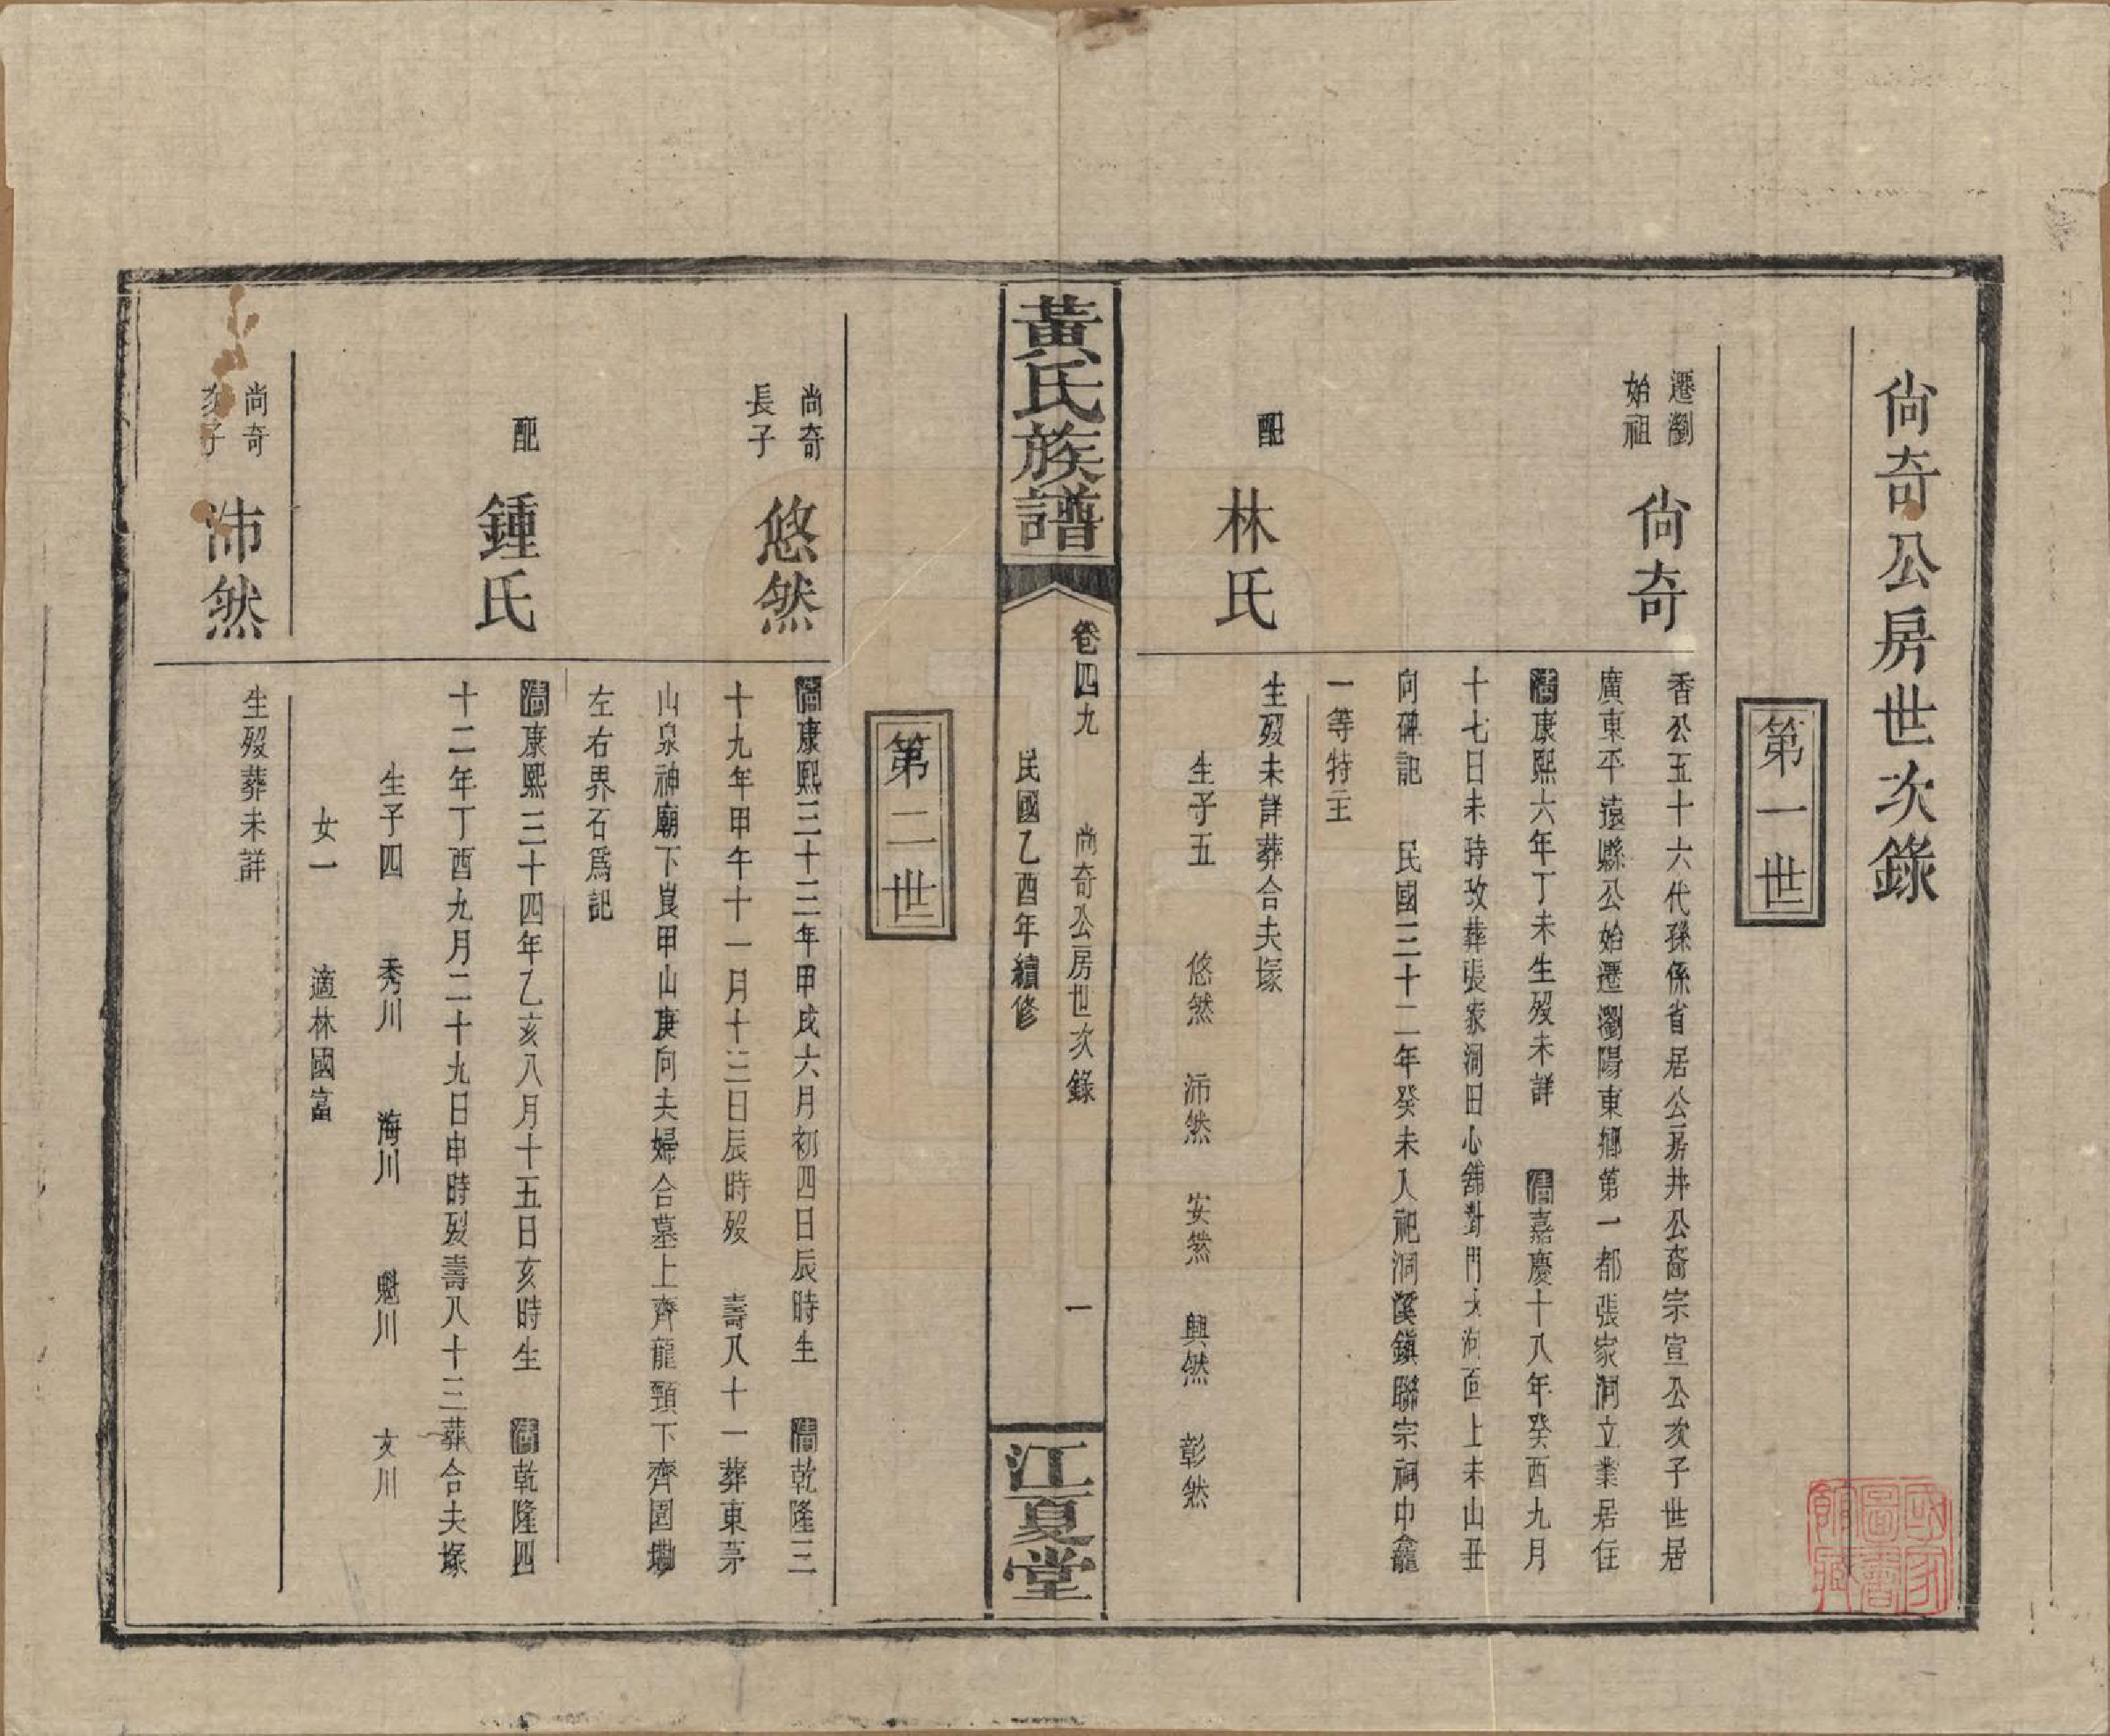 尙奇公房世次錄
第一世
遷瀏
始祖
尙奇
香公五十六代孫係省居公房井公裔宗宣公次子世居
廣東平遠縣公始遷瀏陽東鄉第一都張家洞立業居住
清康熙六年丁未生歿未詳 清嘉慶十八年癸酉九月
十七日未時改葬張家洞田心舖對門大湖面上未山丑
向碑記 民國三十二年癸未入祀洞溪鎮聯宗祠中龕
一等特主
配
林氏
生歿未詳葬合夫塚
生子五 悠然 沛然 安然 興然 彰然
黃氏族譜
卷四九 尚奇公房世次錄 一
民國乙酉年續修
江夏堂
第二世
尚奇
長子
悠然
清康熙三十三年甲戌六月初四日辰時生 清乾隆三
十九年甲午十一月十三日辰時歿 壽八十一葬東茅
山泉神廟下艮甲山庚向夫婦合墓上齊龍頸下齊園墈
左右界石爲記
配
鍾氏
清康熙三十四年乙亥八月十五日亥時生 清乾隆四
十二年丁酉九月二十九日申時歿壽八十三葬合夫塚
生子四 秀川 海川 魁川 文川
女一 適林國富
尚奇
次子
沛然
生歿葬未詳
國家
圖書
館藏